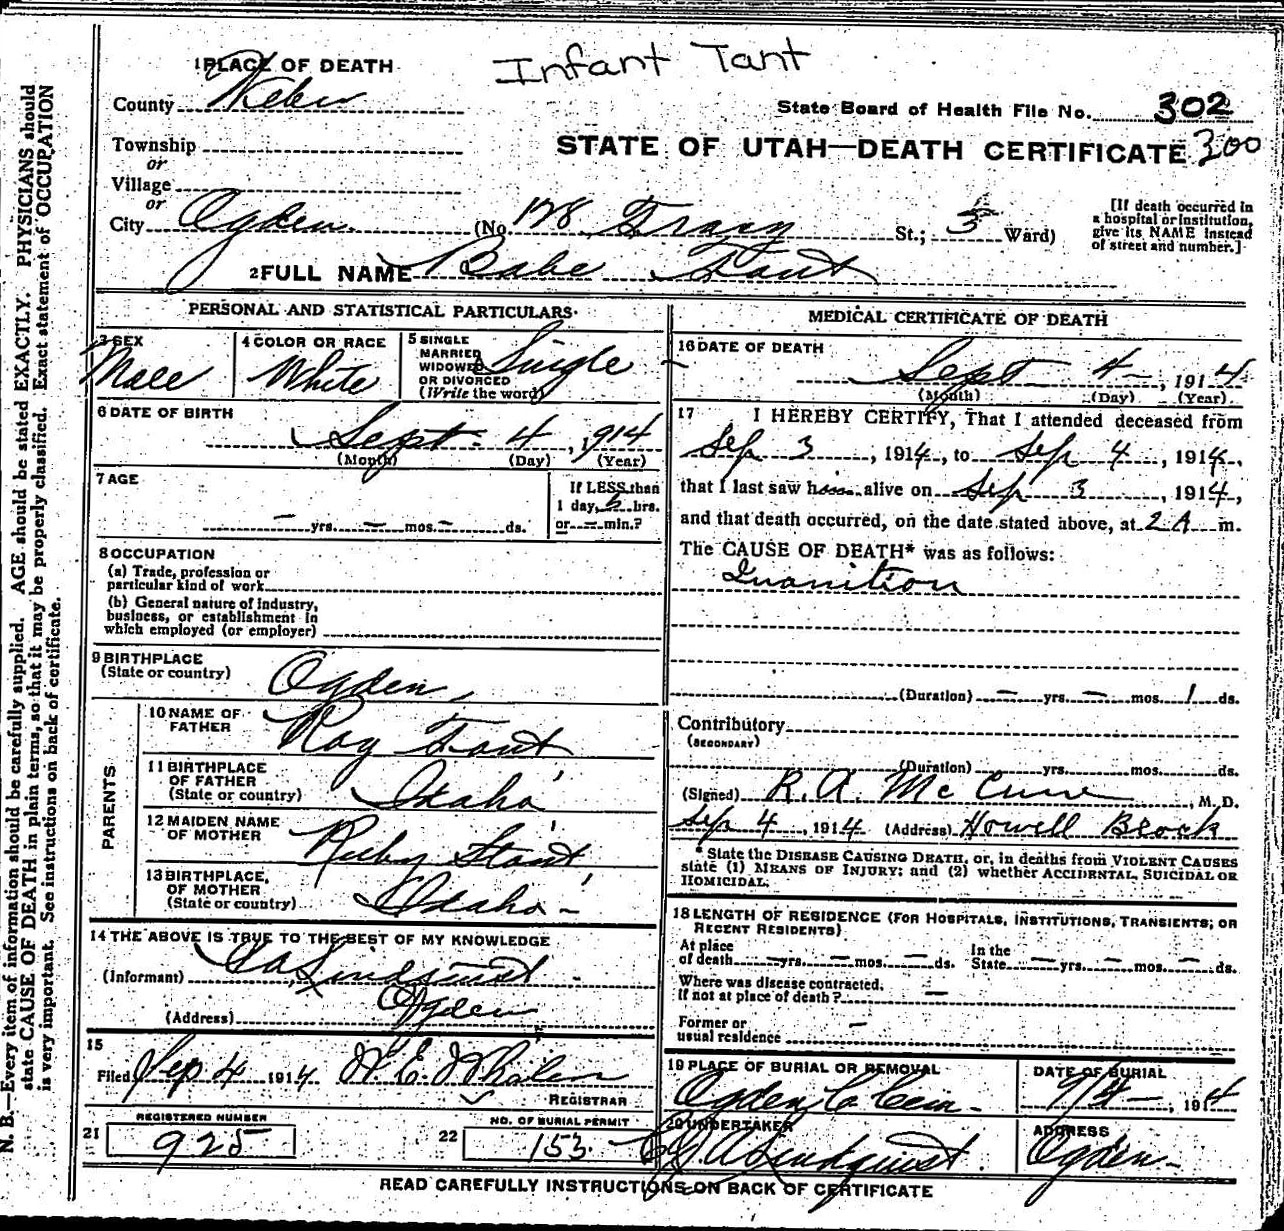 Infant Tant
1 PLACE OF DEATH
County Weber
State Board of Health File No. 302
Township
STATE OF UTAH—DEATH CERTIFICATE 300
or
Village
or
City Ogden (No. 128 Tracy St.; 3 Ward)
[If death occurred in a hospital or institution, give its NAME instead of street and number.]
2 FULL NAME Babe Tant
PERSONAL AND STATISTICAL PARTICULARS
3 SEX Male
4 COLOR OR RACE White
5 SINGLE MARRIED WIDOWED OR DIVORCED (Write the word) Single
6 DATE OF BIRTH
Sept. 4, 1914
(Month) (Day) (Year)
7 AGE
— yrs. — mos. — ds.
If LESS than
1 day, hrs.
or — min.?
8 OCCUPATION
(a) Trade, profession or
particular kind of work
(b) General nature of industry,
business, or establishment in
which employed (or employer)
9 BIRTHPLACE
(State or country) Ogden,
PARENTS
10 NAME OF
FATHER Roy Tant
11 BIRTHPLACE
OF FATHER
(State or country) Idaho
12 MAIDEN NAME
OF MOTHER Ruby
13 BIRTHPLACE,
OF MOTHER
(State or country) Idaho —
14 THE ABOVE IS TRUE TO THE BEST OF MY KNOWLEDGE
(Informant) Lindquist
(Address) Ogden
15
Filed Sep 4 1914 W. E. Whalen
REGISTRAR
21 REGISTERED NUMBER
925
22 NO. OF BURIAL PERMIT
153
MEDICAL CERTIFICATE OF DEATH
16 DATE OF DEATH
Sept 4, 1914
(Month) (Day) (Year)
17 I HEREBY CERTIFY, That I attended deceased from
Sep 3, 1914, to Sep 4, 1914,
that I last saw him alive on Sep 3, 1914,
and that death occurred, on the date stated above, at 2 A m.
The CAUSE OF DEATH* was as follows:
Inanition
(Duration) — yrs. — mos. 1 ds.
Contributory
(SECONDARY)
(Duration) yrs. mos. ds.
(Signed) R. A. McCune, M. D.
Sep 4, 1914 (Address) Howell Block
* State the DISEASE CAUSING DEATH, or, in deaths from VIOLENT CAUSES
state (1) MEANS OF INJURY; and (2) whether ACCIDENTAL, SUICIDAL OR
HOMICIDAL.
18 LENGTH OF RESIDENCE (FOR HOSPITALS, INSTITUTIONS, TRANSIENTS, OR
RECENT RESIDENTS)
At place
of death — yrs. — mos. — ds.
In the
State — yrs. — mos. — ds.
Where was disease contracted,
if not at place of death? —
Former or
usual residence —
19 PLACE OF BURIAL OR REMOVAL
Ogden C Cem.
DATE OF BURIAL
9/4 —, 1914
20 UNDERTAKER
Lindquist.
ADDRESS
Ogden —
READ CAREFULLY INSTRUCTIONS ON BACK OF CERTIFICATE
N. B.—Every item of information should be carefully supplied. AGE should be stated EXACTLY. PHYSICIANS should
state CAUSE OF DEATH in plain terms, so that it may be properly classified. Exact statement of OCCUPATION
is very important. See instructions on back of certificate.